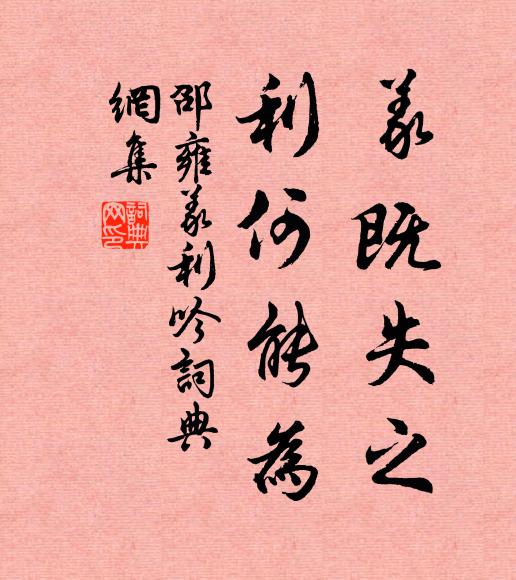 義既失之
利何能為
邵雍義利吟詞典
網集
詞典
网印